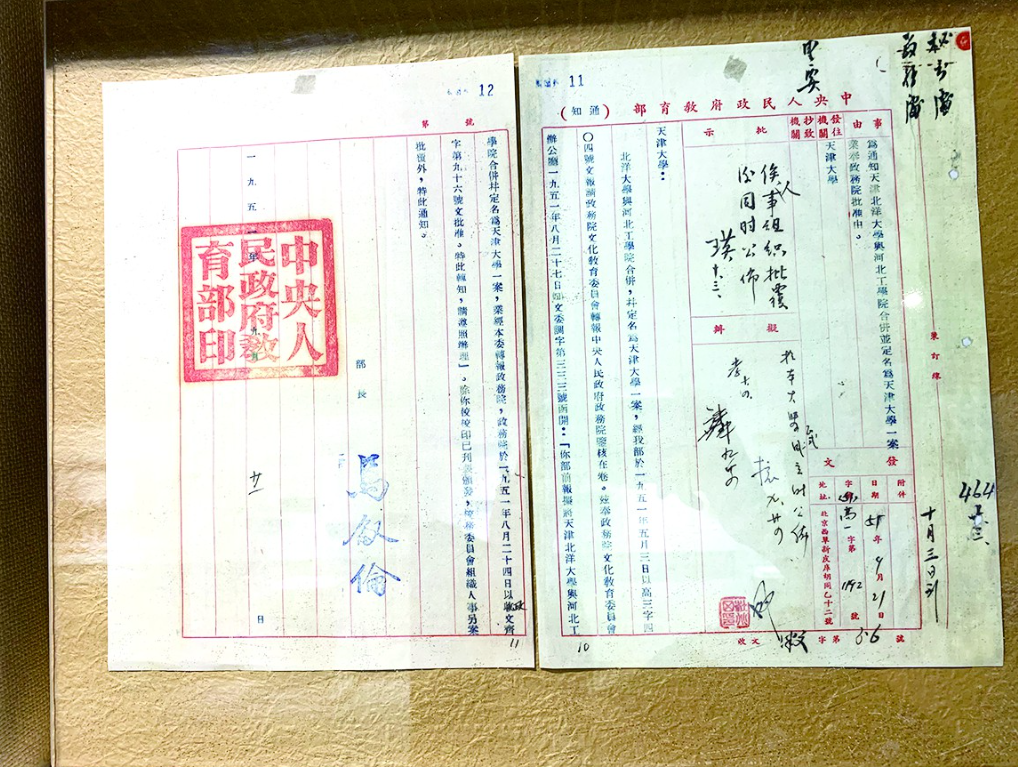 11
中央人民政府教育部（通知）
事由
為通知天津北洋大學與河北工學院合併並定名為天津大學一案
業奉政務院批准由。
發往機關
抄致機關
天津大學
批示
俟人事組織批覆
後同時公佈
擬辦
發文
附件
日期 51年9月21日
字號 高一字第1192號
地址 北京西單新皮庫胡同乙十二號
收文 字第 號
裝訂線
十月三日到
464
天津大學：
北洋大學與河北工學院合併，并定名為天津大學一案，經我部於一九五一年五月三日以高三字四
〇四號文報請政務院文化教育委員會轉報中央人民政府政務院鑒核在卷。茲奉政務院文化教育委員會
辦公廳一九五一年八月二十七日 文委調字第三三三號函開：「你部前報擬將天津北洋大學與河北工
10
12
第 號
學院合併并定名為天津大學一案，業經本委轉報政務院，政務院於一九五一年八月二十四日以政文齊
字第九十六號文批准。特此轉知，請遵照辦理」。除你校校印已刊 頒發，校務委員會組織人事另案
批覆外，特此通知。
部長
馬敘倫
一九五一年九月廿一日
中央人民政府教育部印
11